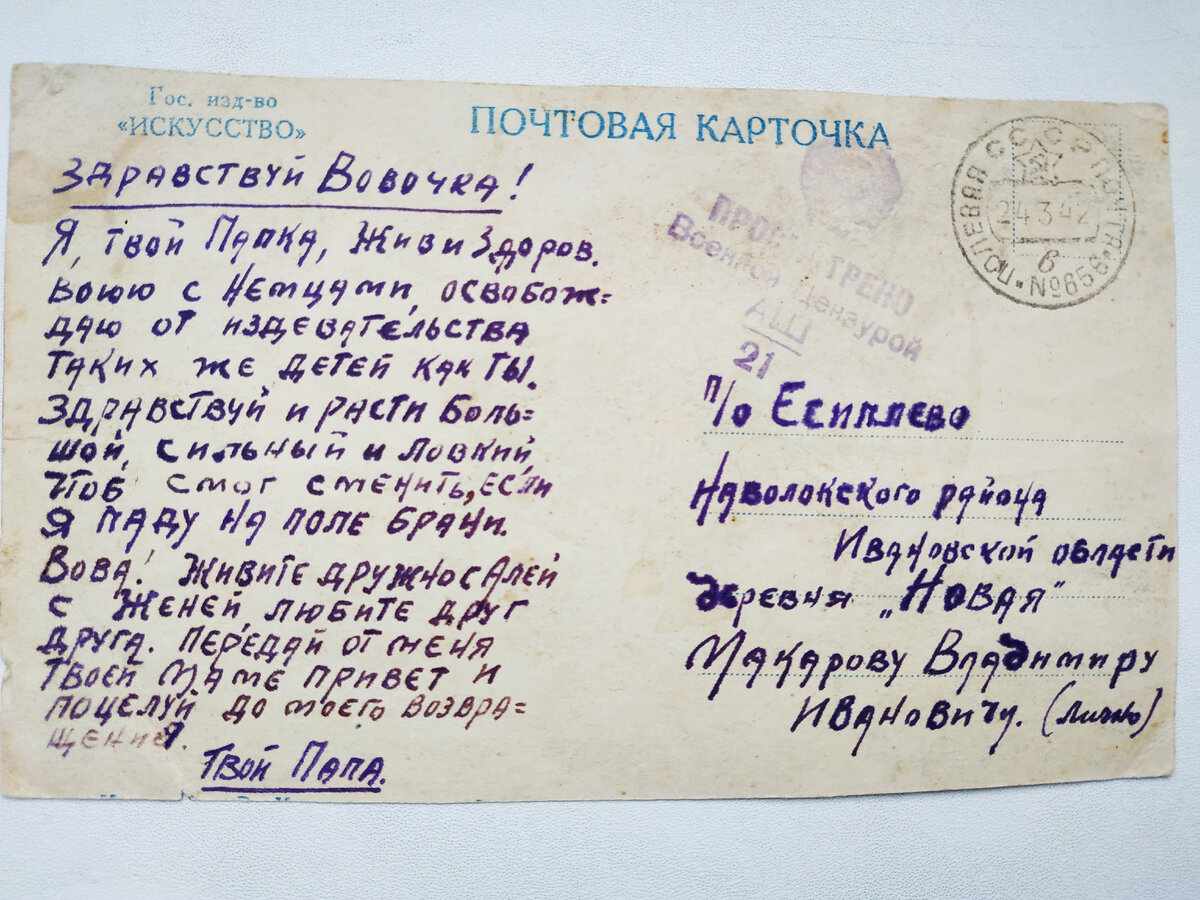 Гос. изд-во
«ИСКУССТВО»
ПОЧТОВАЯ КАРТОЧКА
Здравствуй Вовочка!
Я, твой Папка, Жив и Здоров.
воюю с Немцами, освобож=
даю от издевательства
таких же детей как ты.
Здравствуй и расти боль=
шой, сильный и ловкий,
чтоб смог сменить, если
я паду на поле брани.
Вова! Живите дружно с Алей
с Женей, любите друг
друга. Передай от меня
твоей Маме привет и
поцелуй до моего возвра=
щения.
Твой Папа.
ПРОСМОТРЕНО
Военной Цензурой
АШ
21
ПОЛЕВАЯ СССР ПОЧТА
24.3.42
в
№856
п/о Есиплево
Наволокского района
Ивановской области
деревня „Новая"
Макарову Владимиру
Ивановичу. (лично)